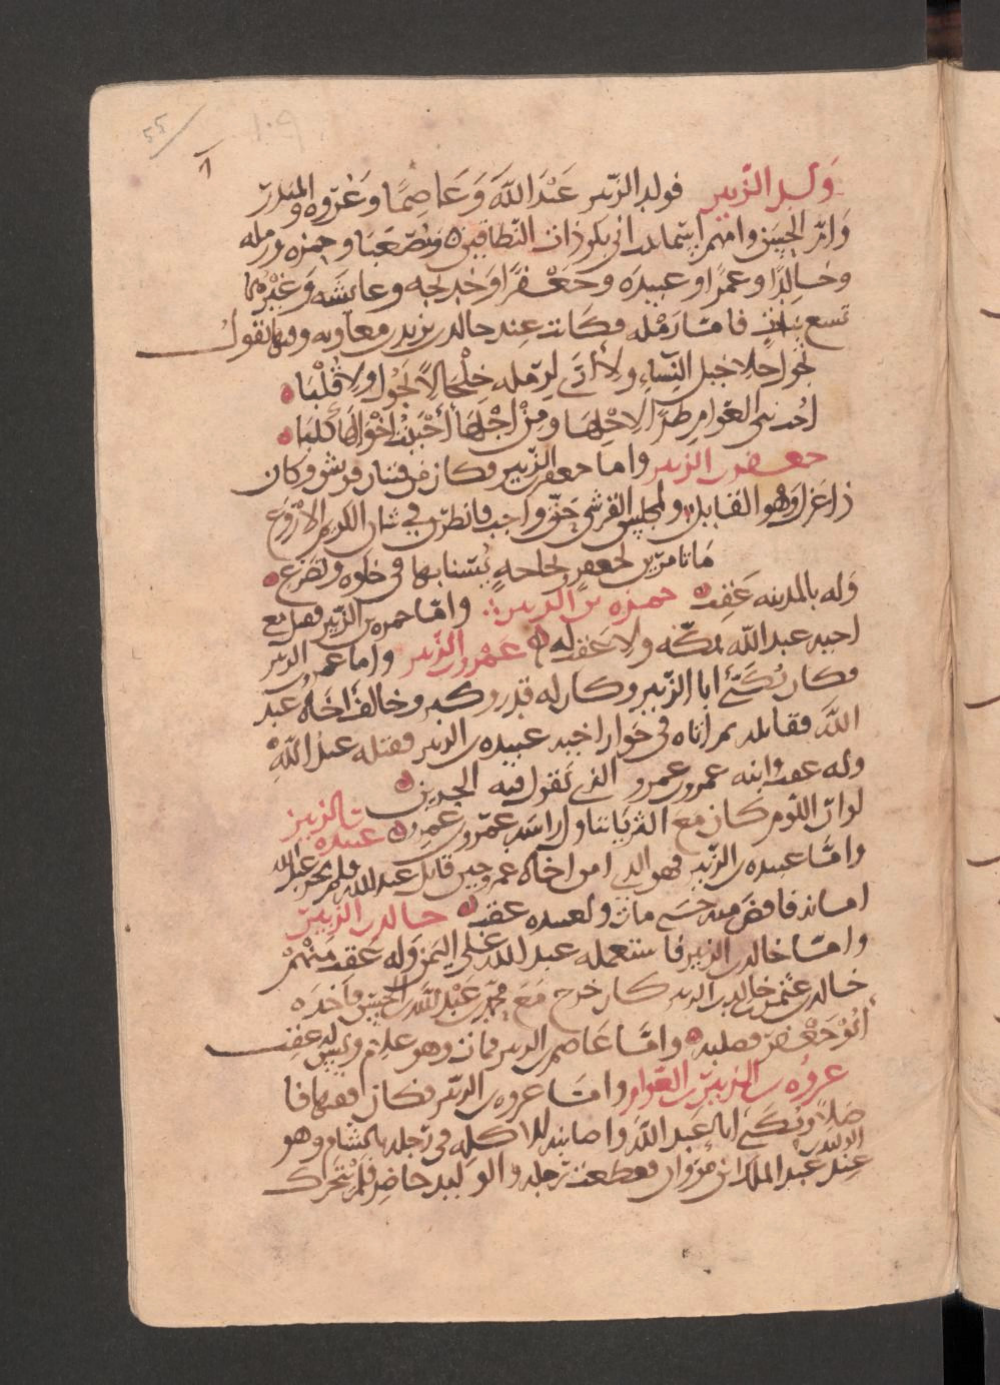 55 109
ولد الزبير فولد الزبير عَبْدَ اللَّه وَعَاصِمًا وعُرْوه والمنذر
وام الحسن وامهم اسما بنت ابى بكر ذات النطاقين ومُصْعَبًا وحمزه ورمله
وخالدًا وعمرًا وعبيده وجَعْفرًا وخديجه وعائشه وغيرهما
تسع بنات فامّا رَمْله فكانت عِند خالد بن يزيد بن معاويه وفيها يقول
تجول خلاخيل النِّسَاءِ ولا ارَى لرمله خِلْخالاً يجُول ولا قُلْبَا
احب بنى العوام طرًّا لاجْلِهَا ومِنْ اجْلِهَا أحْبَبْتُ اخْوَالَهَا كَلْبَا
جعفر بن الزبير واما جعفر بن الزبير فكان من فتيان قريش وكان
ذا غزل وهو القايل ولمجلس القرشى حَقّ واجب فانظرن فى شان الكريم الأروَع
ما تامرين لجعفر بحاجةٍ يستامها فى خلوه وتضرع
وله بالمدينه عَقِب حمزه بن الزبير وامّا حمزه بن الزّبير فقتل مع
اخيه عبد الله بمكّه ولا عَقب له عمرو بن الزّبير واما عمرو بن الزبير
فكان يُكَنّى ابا الزّبير وكان له قدر وكبر وخالف اخَاه عَبد
اللَّه فقاتله ثم اتاه فى جوار اخيه عبيده بن الزبير فقتله عبد اللَّهْ
وله عقب وابنه عمرو بن عمرو الذى يَقول فيه الحزين
لو ان اللوم كان مع الثريا تناول راسَه عمرو بن عمرو عبيده بن الزبير
وامّا عبيده بن الزبير فهو الذى امن اخاه عمر حين قاتل عبد الله فلم يجز عبد الله
امانه فاقتص منه حتى مات ولعبيده عقب خالد بن الزبير
وامّا خالد بن الزبير فاستعمله عبد الله على اليمن وله عقب مِنْهُمْ
خالد بن عثمن بن خالد بن الزبير كان خرج مَعَ محمّد بن عَبْدِ اللَّه بن الحسَن فاخذه
ابُوْ جَعْفر فصلبه وامّا عَاصم بن الزبير فمات وهو غلام وليس له عقب
عروه بن الزبير بن العوام وامّا عروه بن الزبير فكان فقيها فا
ضلا ويُكَنَّى ابا عبد اللَّه واصابته الاكله فى رجله بالشام وهو
عِند الوليد بن عبد الملك ابن مروان فقطعت رجله والوليد حاضر فلم يتحرك